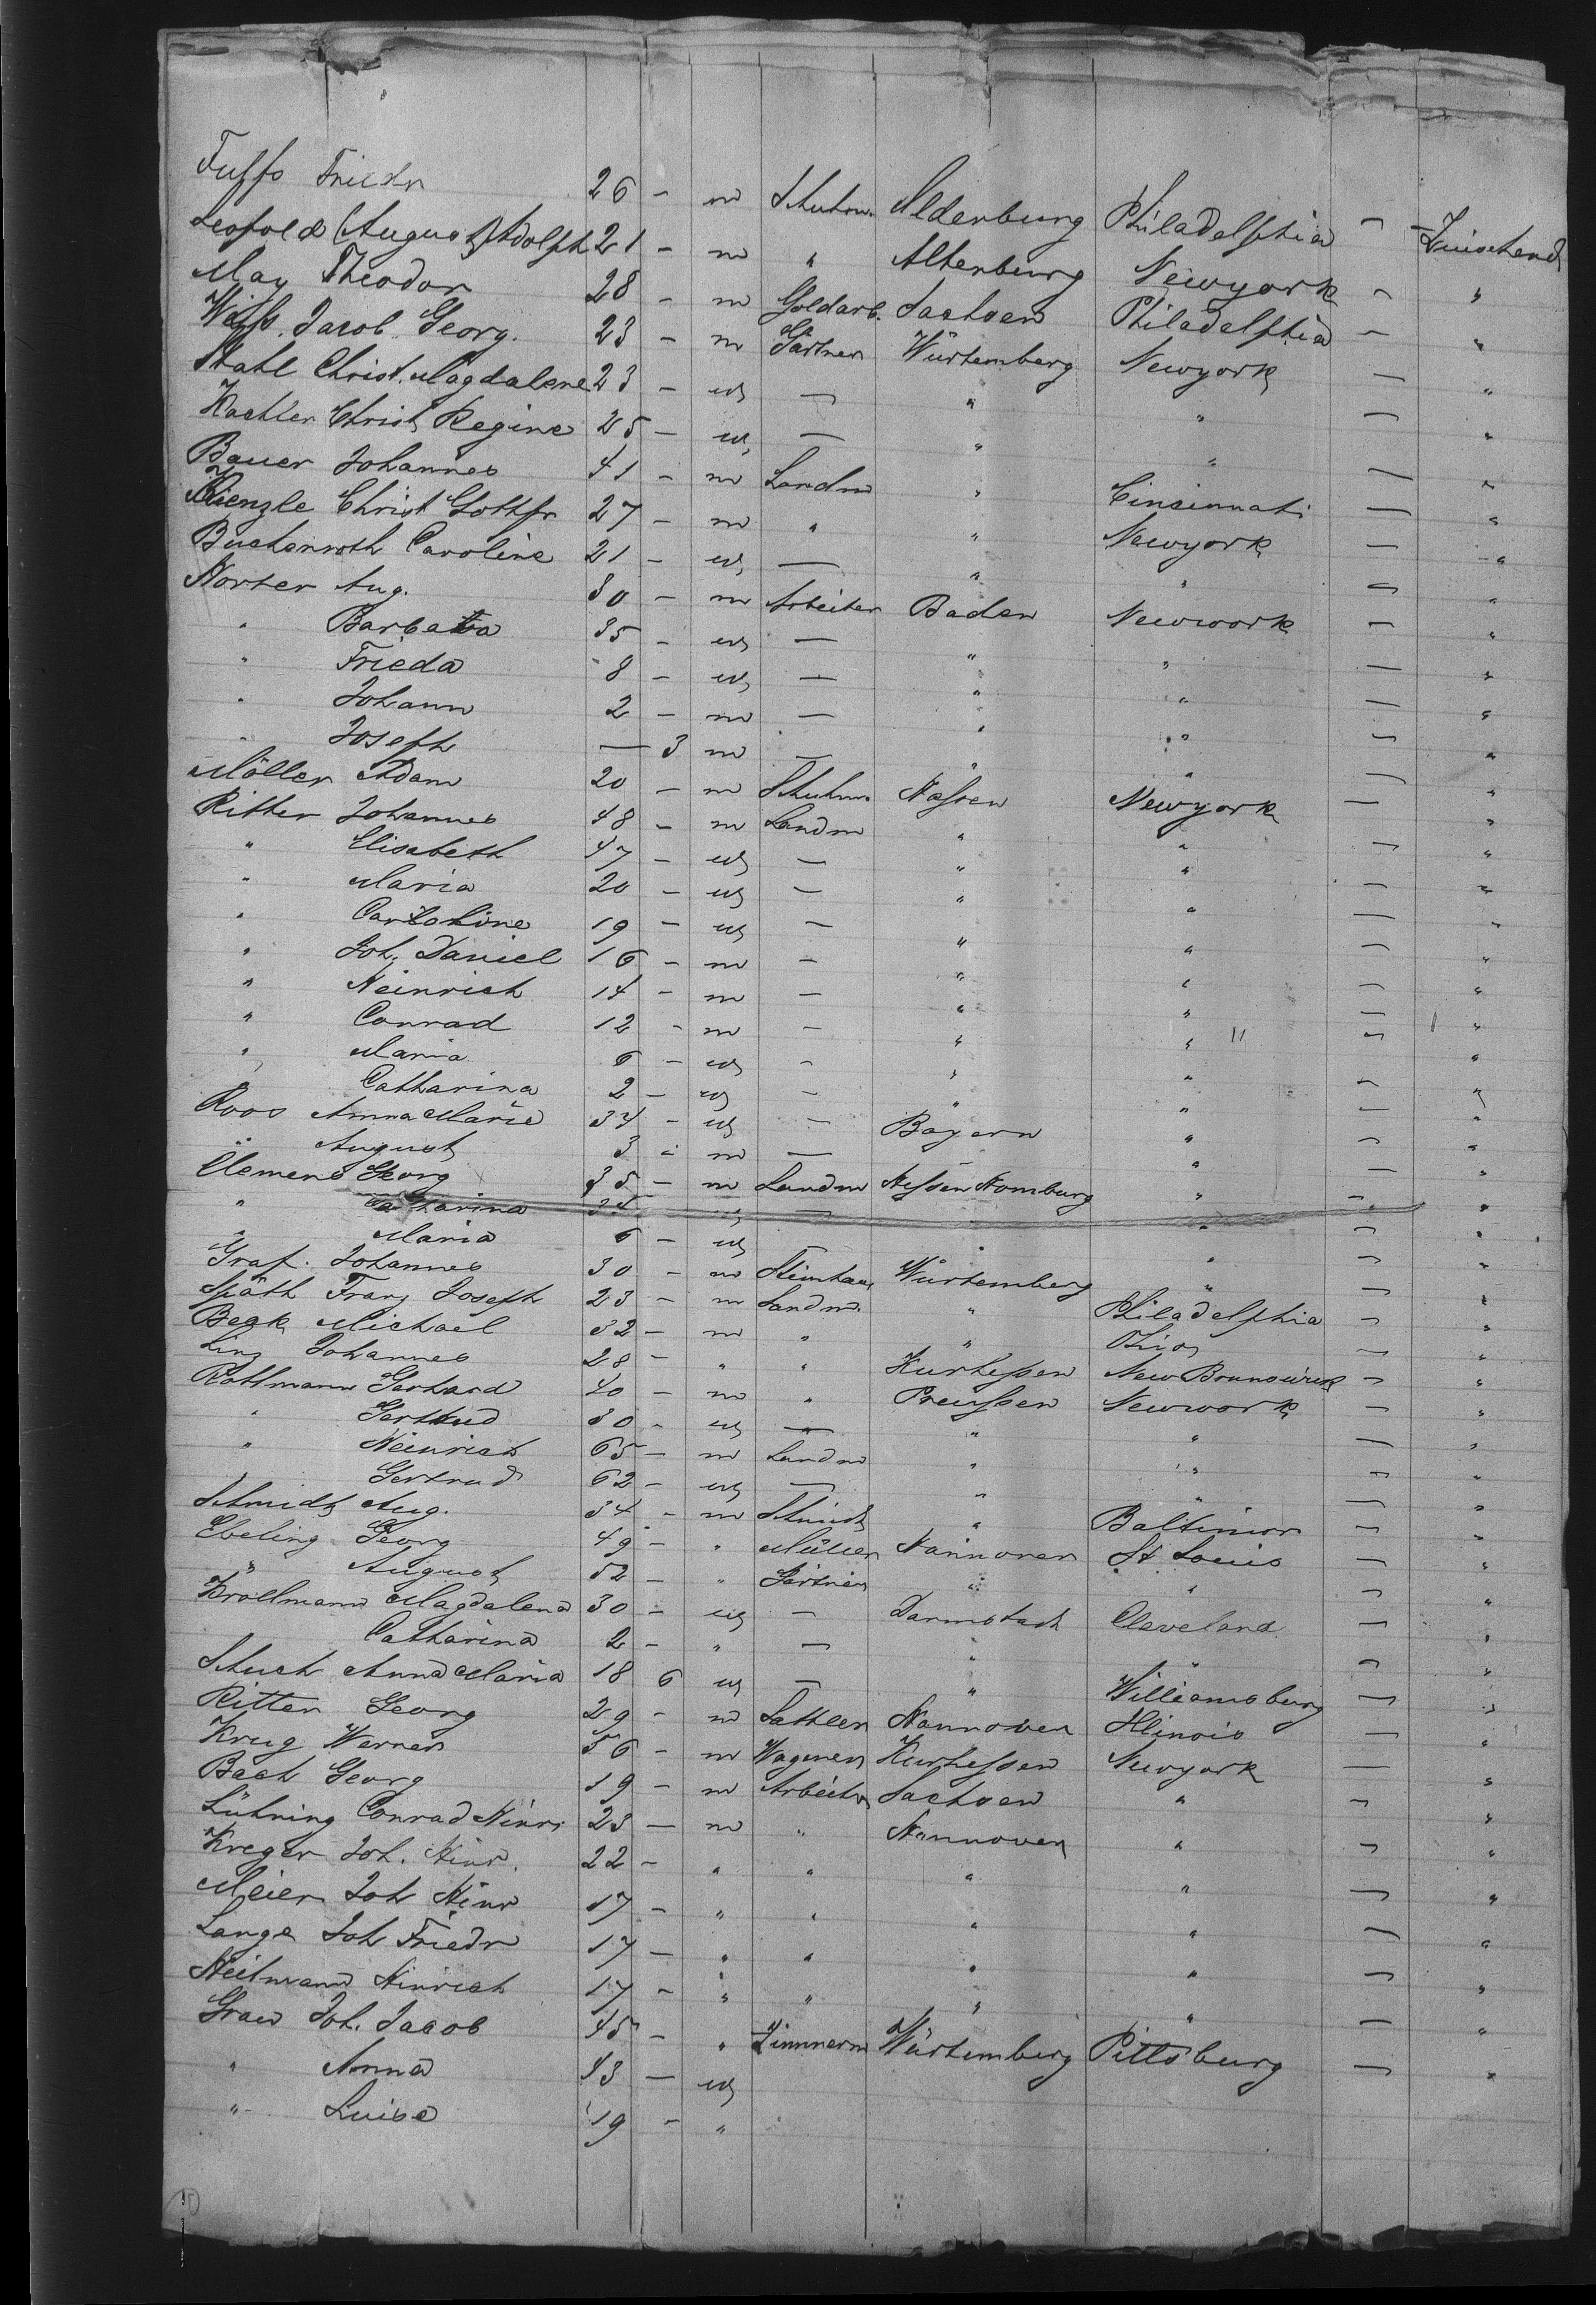 Fuſſs Friedr 26 — m Schuhm. Oldenburg Philadelphia — Zwischend
Leopold (August) Adolph 21 — m " Altenburg Newyork — "
May Theodor 28 — m Goldarb. Sachsen Philadelphia — "
Weiſs Jacob Georg. 23 — m Gärtner Würtemberg Newyork — "
Stahl Christ. Magdalene 23 — w — " " — "
Kachler Christ Regine 25 — w — " " — "
Bauer Johannes 41 — m Landm " Cinsinnati — "
Kienzle Christ Gottfr 27 — m " " Newyork — "
Buchenroth Caroline 21 — w — " " — "
Horter Aug. 30 — m Arbeiter Baden Newwork — "
" Barbara 35 — w — " " — "
" Frieda 8 — w — " " — "
" Johann 2 — m — " " — "
" Joseph — 3 m — " " — "
Möller Adam 20 — m Schuhm. Hessen Newyork — "
Ritter Johannes 48 — m Landm " " — "
" Elisabeth 47 — w — " " — "
" Maria 20 — w — " " — "
" Caroline 19 — w — " " — "
" Joh. Daniel 16 — m — " " — "
" Heinrich 14 — m — " " — "
" Conrad 12 — m — " " — "
" Maria 6 — w — " " — "
Catharina 2 — w — " " — "
Roos Anna Marie 34 — w — Bayern " — "
" August 3 — m — " — "
Clemens Georg 35 — m Landm Heſsen Homburg " — "
" Catharina 34 — " "
" Maria 6 — w — " " — "
Graf Johannes 30 — m Steinhau Würtemberg " — "
Späth Franz Joseph 23 — m Landm. " Philadelphia — "
Beck Michael 32 — m " " Ohio — "
Linz Johannes 28 — " " Kurheſsen New Brunswick — "
Rothmann Gerhard 40 — m " Preuſsen Newwork — "
" Gertrud 30 — w — " " — "
" Heinrich 65 — m Landm " " — "
Gertrud 62 — w — " " — "
Schmidt Aug. 34 — m Schmidt " Baltimor — "
Ebeling Georg 49 — " Müller Hannover St Louis — "
" August 52 — " Gärtner " " — "
Krollmann Magdalena 30 — w — Darmstadt Cleveland — "
Catharina 2 — " — " " — "
Schuch Anna Maria 18 6 w — " Williamsburg — "
Ritter Georg 29 — m Sattler Hannover Illinois — "
Krug Werner 56 — m Wagner Kurheſsen Newyork — "
Bach Georg 19 — m Arbeiter Sachsen " — "
Lühning Conrad Hinr 23 — m " Hannover " — "
Kreger Joh. Hinr. 22 — " " " " — "
Meier Joh Hinr 17 — " " " " — "
Lange Joh Friedr 17 — " " " " — "
Heilmann Hinrich 17 — " " " " — "
Graw Joh. Jacob 45 — " Zimmerm Würtemberg Pittsburg — "
" Anna 43 — w
" Luise 19 — "